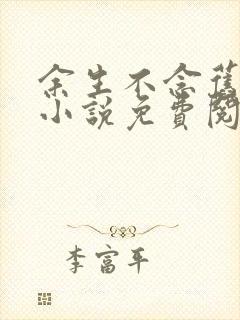 余生不念舊
小說免費閱
李富平